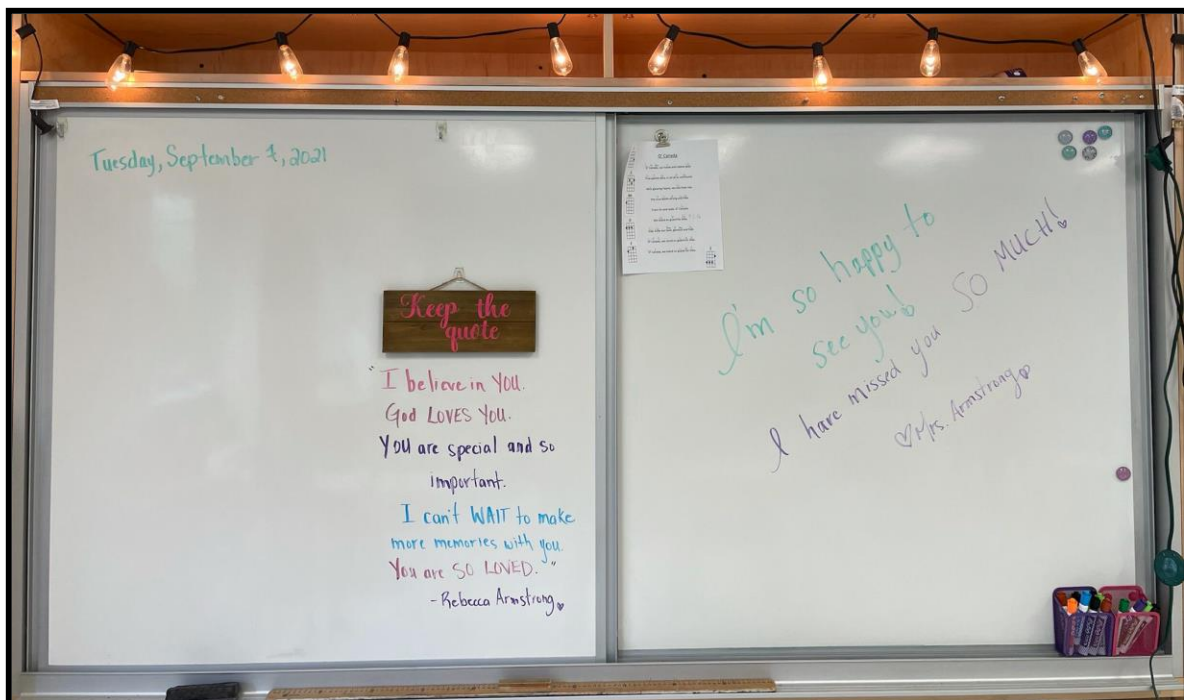 Tuesday, September 7, 2021
Keep the
quote
"I believe in YOU.
God LOVES YOU.
YOU are special and so
important.
I can't WAIT to make
more memories with you.
You are SO LOVED."
-Rebecca Armstrong
O Canada
I'm so happy to
see you!
I have missed you SO MUCH!
Mrs. Armstrong